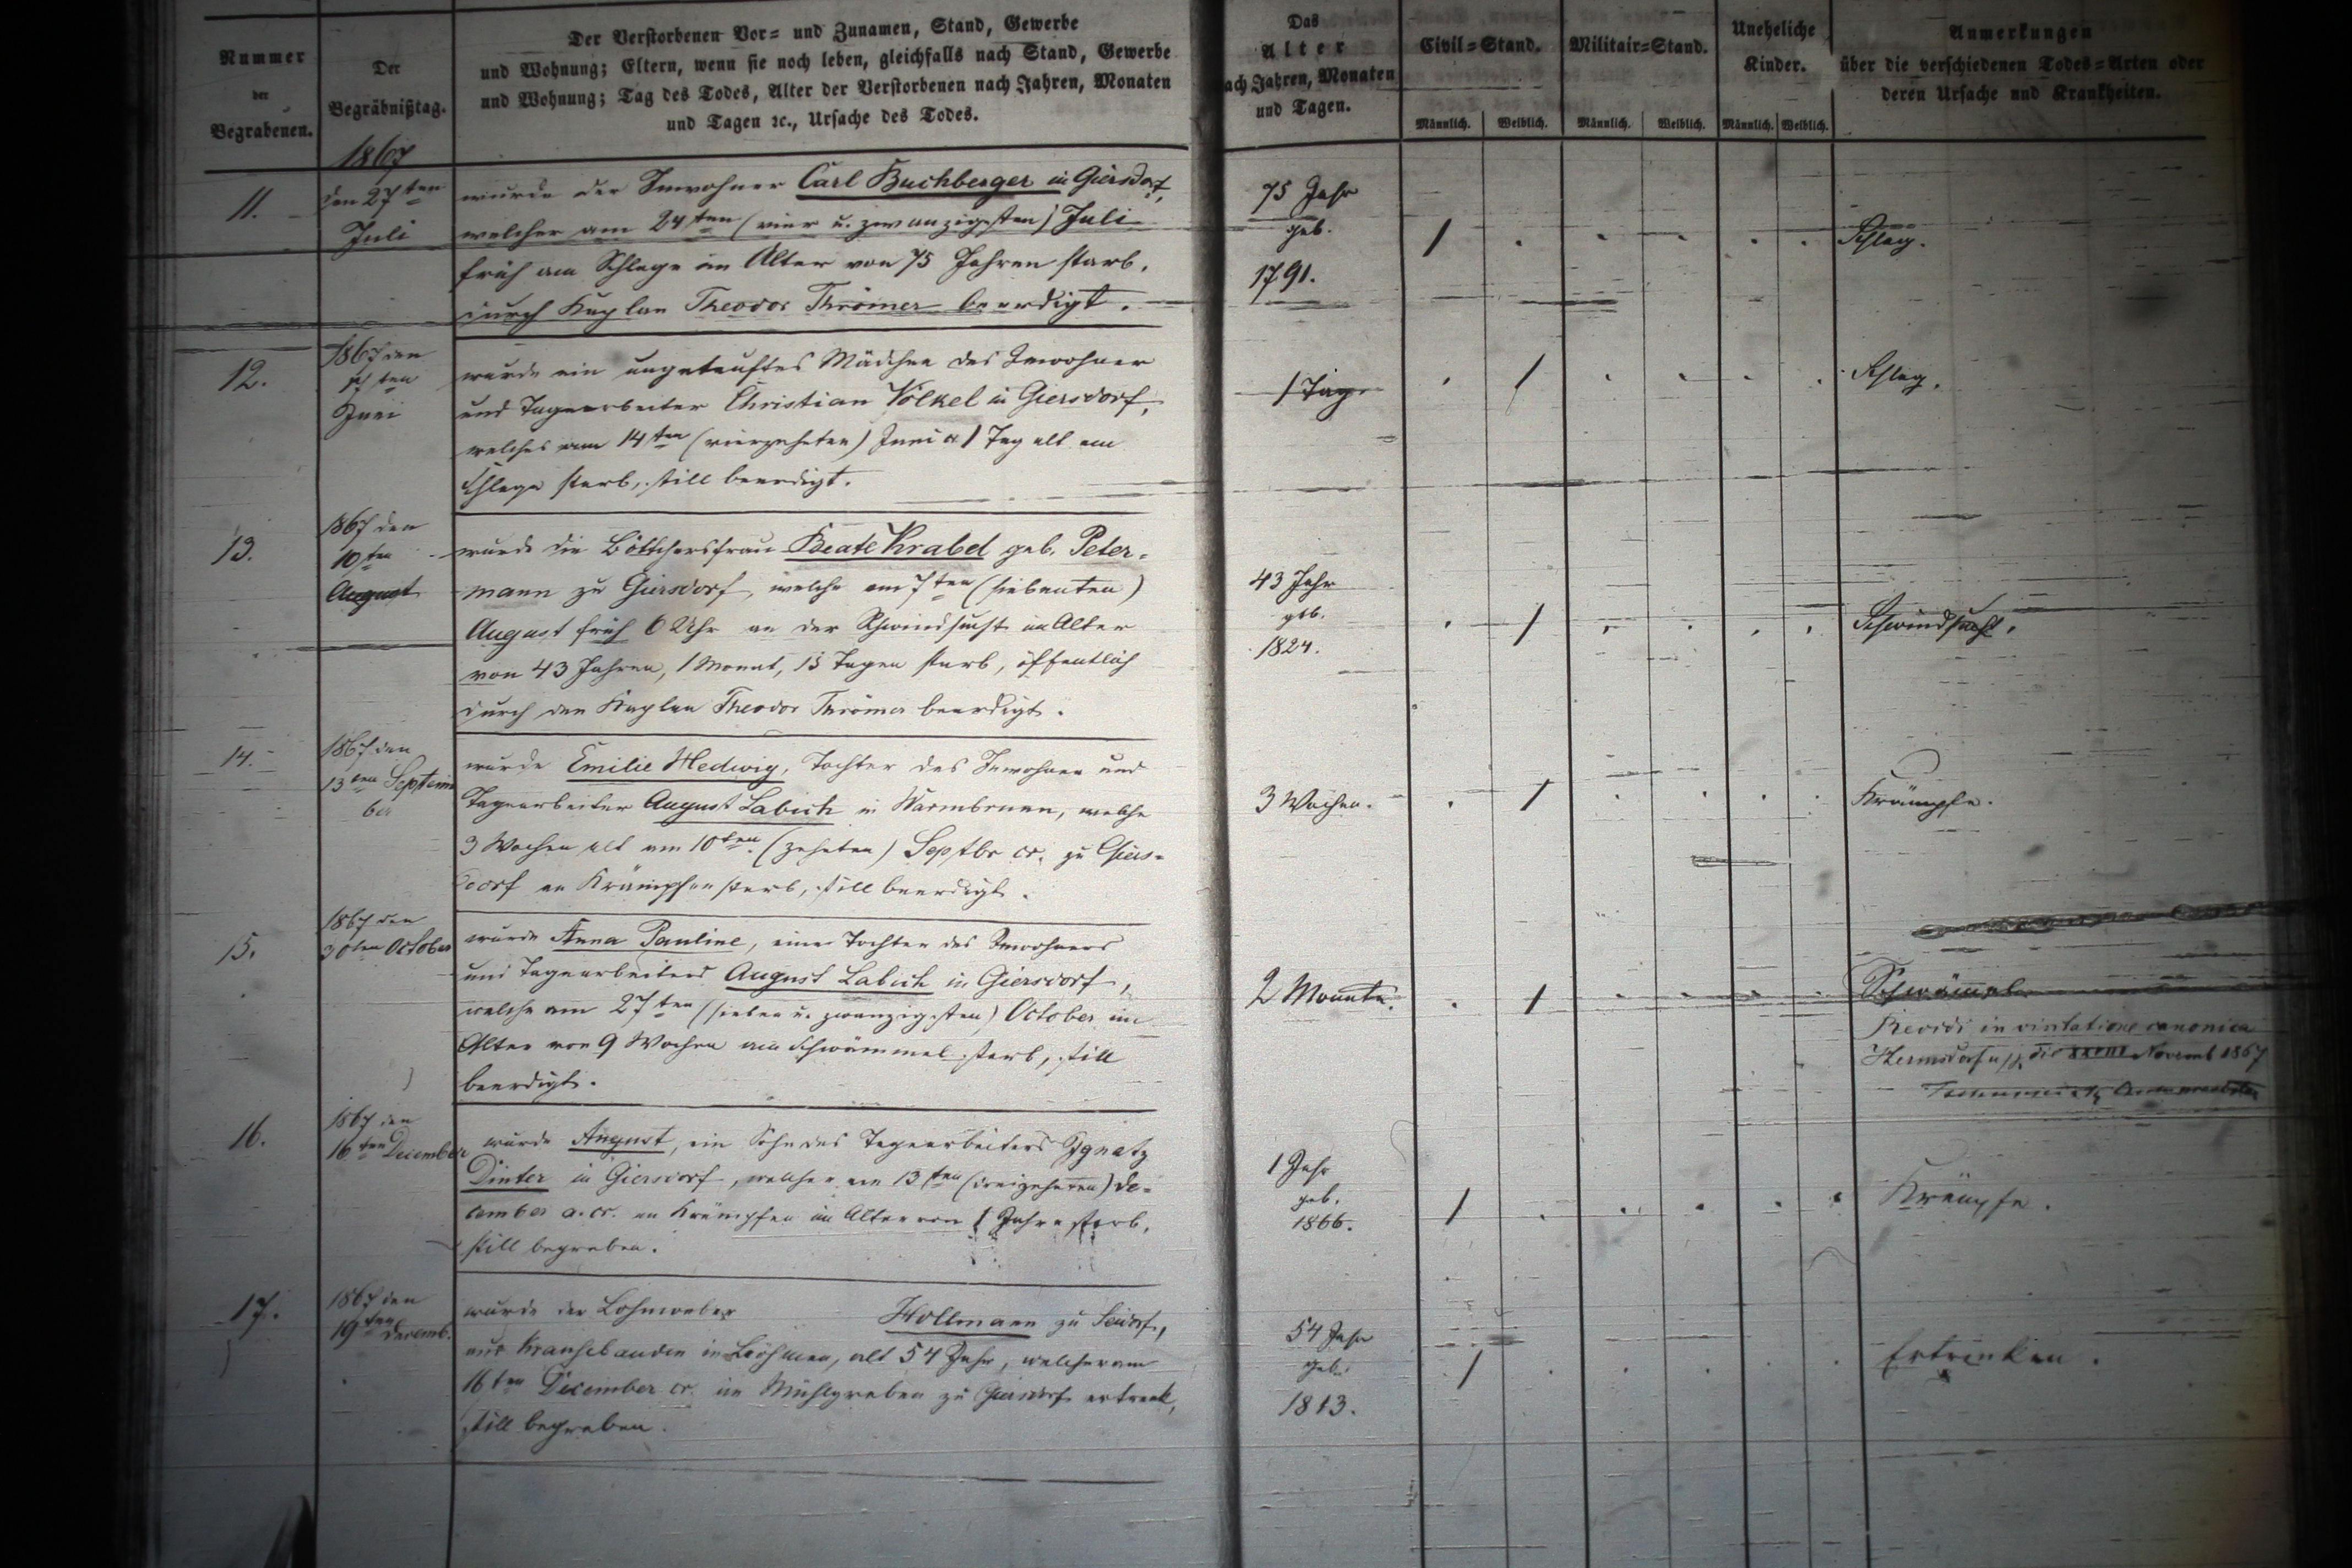 Nummer
der
Begrabenen.
Der
Begräbnißtag.
Der Verstorbenen Vor- und Zunamen, Stand, Gewerbe
und Wohnung; Eltern, wenn sie noch leben, gleichfalls nach Stand, Gewerbe
und Wohnung; Tag des Todes, Alter der Verstorbenen nach Jahren, Monaten
und Tagen ꝛc., Ursache des Todes.
Das
Alter
nach Jahren, Monaten
und Tagen.
Civil-Stand.
Männlich. Weiblich.
Militair-Stand.
Männlich. Weiblich.
Uneheliche
Kinder.
Männlich. Weiblich.
Anmerkungen
über die verschiedenen Todes-Arten oder
deren Ursache und Krankheiten.
1867
11.
den 27ten
Juli
wurde der Inwohner Carl Buchberger in Giersdorf,
welcher am 24ten (vier u. zwanzigsten) Juli
früh am Schlage im Alter von 75 Jahren starb,
durch Kaplan Theodor Thrömer beerdigt.
75 Jahr
geb.
1791.
/ . . . . .
Schlag.
12.
1867 den
ten
Juni
wurde ein ungetauftes Mädchen des Inwohner
und Tagearbeiter Christian Völkel in Giersdorf,
welches am 14ten (vierzehnten) Juni 1 Tag alt am
Schlage starb, still beerdigt.
1 Tag.
. / . . . .
Schlag.
13.
1867 den
10ten
August
wurde die Böttchersfrau Beate Krabel geb. Peter-
mann zu Giersdorf, welche am 7ten (siebenten)
August früh 6 Uhr an der Schwindsucht im Alter
von 43 Jahren, 1 Monat, 13 Tagen starb, öffentlich
durch den Kaplan Theodor Thrömer beerdigt.
43 Jahr
geb.
1824.
. / . . . .
Schwindsucht.
14.
1867 den
13ten Septem
ber
wurde Emilie Hedwig, Tochter des Inwohner und
Tagearbeiter August Labich in Warmbrunn, welche
3 Wochen alt am 10ten (zehnten) Septbr cr. zu Giers-
dorf an Krämpfen starb, still beerdigt.
3 Wochen.
. / . . . .
Krämpfe.
15.
1867 den
30ten October
wurde Anna Pauline, eine Tochter des Inwohners
und Tagearbeiters August Labich in Giersdorf,
welche am 27ten (sieben u. zwanzigsten) October im
Alter von 9 Wochen am Schwämmel starb, still
beerdigt.
2 Monate.
. / . . . .
Schwämmel
Revidi in visitatione canonica
Hermsdorf die XXVIII Novemb 1867
16.
1867 den
16ten December
wurde August, ein Sohn des Tagearbeiters Ignatz
Dinter in Giersdorf, welcher am 13ten (dreizehnten) De-
cember a. cr. an Krämpfen im Alter von 1 Jahre starb,
still begraben.
1 Jahr
geb.
1866.
/ . . . . .
Krämpfe.
17.
1867 den
19ten Decemb.
wurde der Lohnweber Hollmann zu Seidorf,
aus in Böhmen, alt 54 Jahr, welcher am
16ten December cr. im Mühlgraben zu Giersdorf ertrank,
still begraben.
54 Jahr
geb.
1813.
/ . . . . .
Ertrinken.